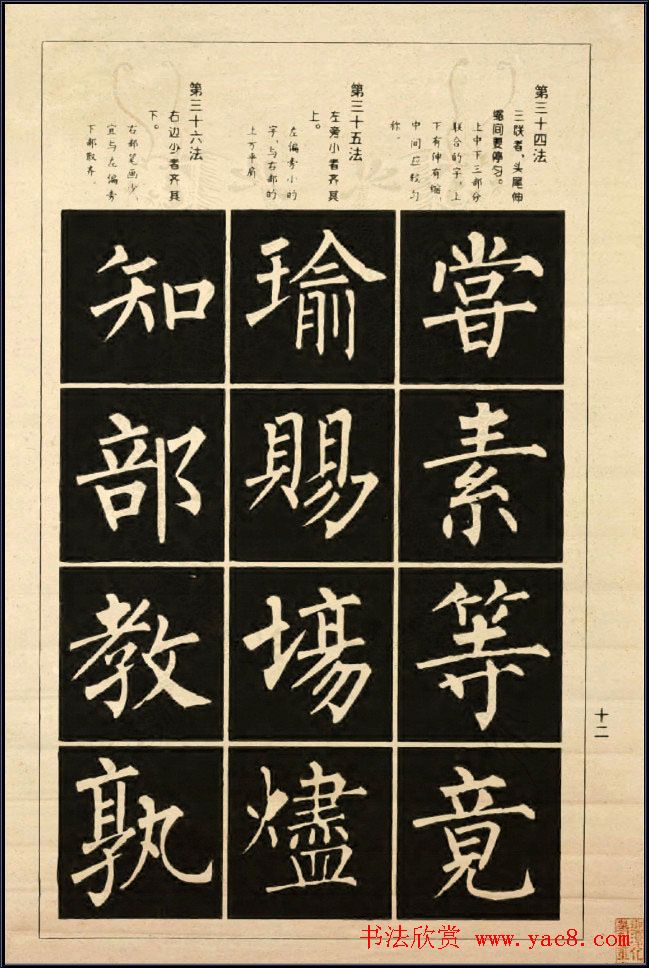 第三十四法
三联者，头尾伸
缩间要停匀。
上中下三部分
联合的字，上
下有伸有缩，
中间较匀
称。
甞
素
等
竟
第三十五法
左旁小者齐其
上。
左偏旁小的
字，与右部的
上方平
瑜
賜
塲
燼
第三十六法
右边少者齐其
下。
右部笔画少，
宜与左偏旁
下部取齐。
知
部
教
孰
十二
书法欣赏 www.yac8.com